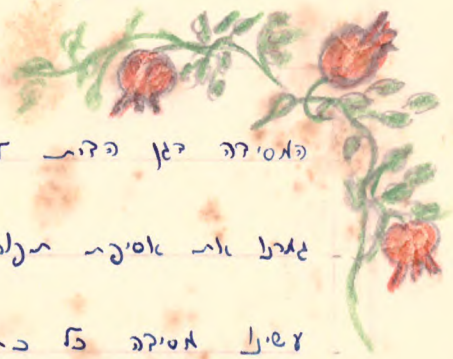 המסיבה בגן
גמרנו את אסיפת
עשינו מסיבה כל